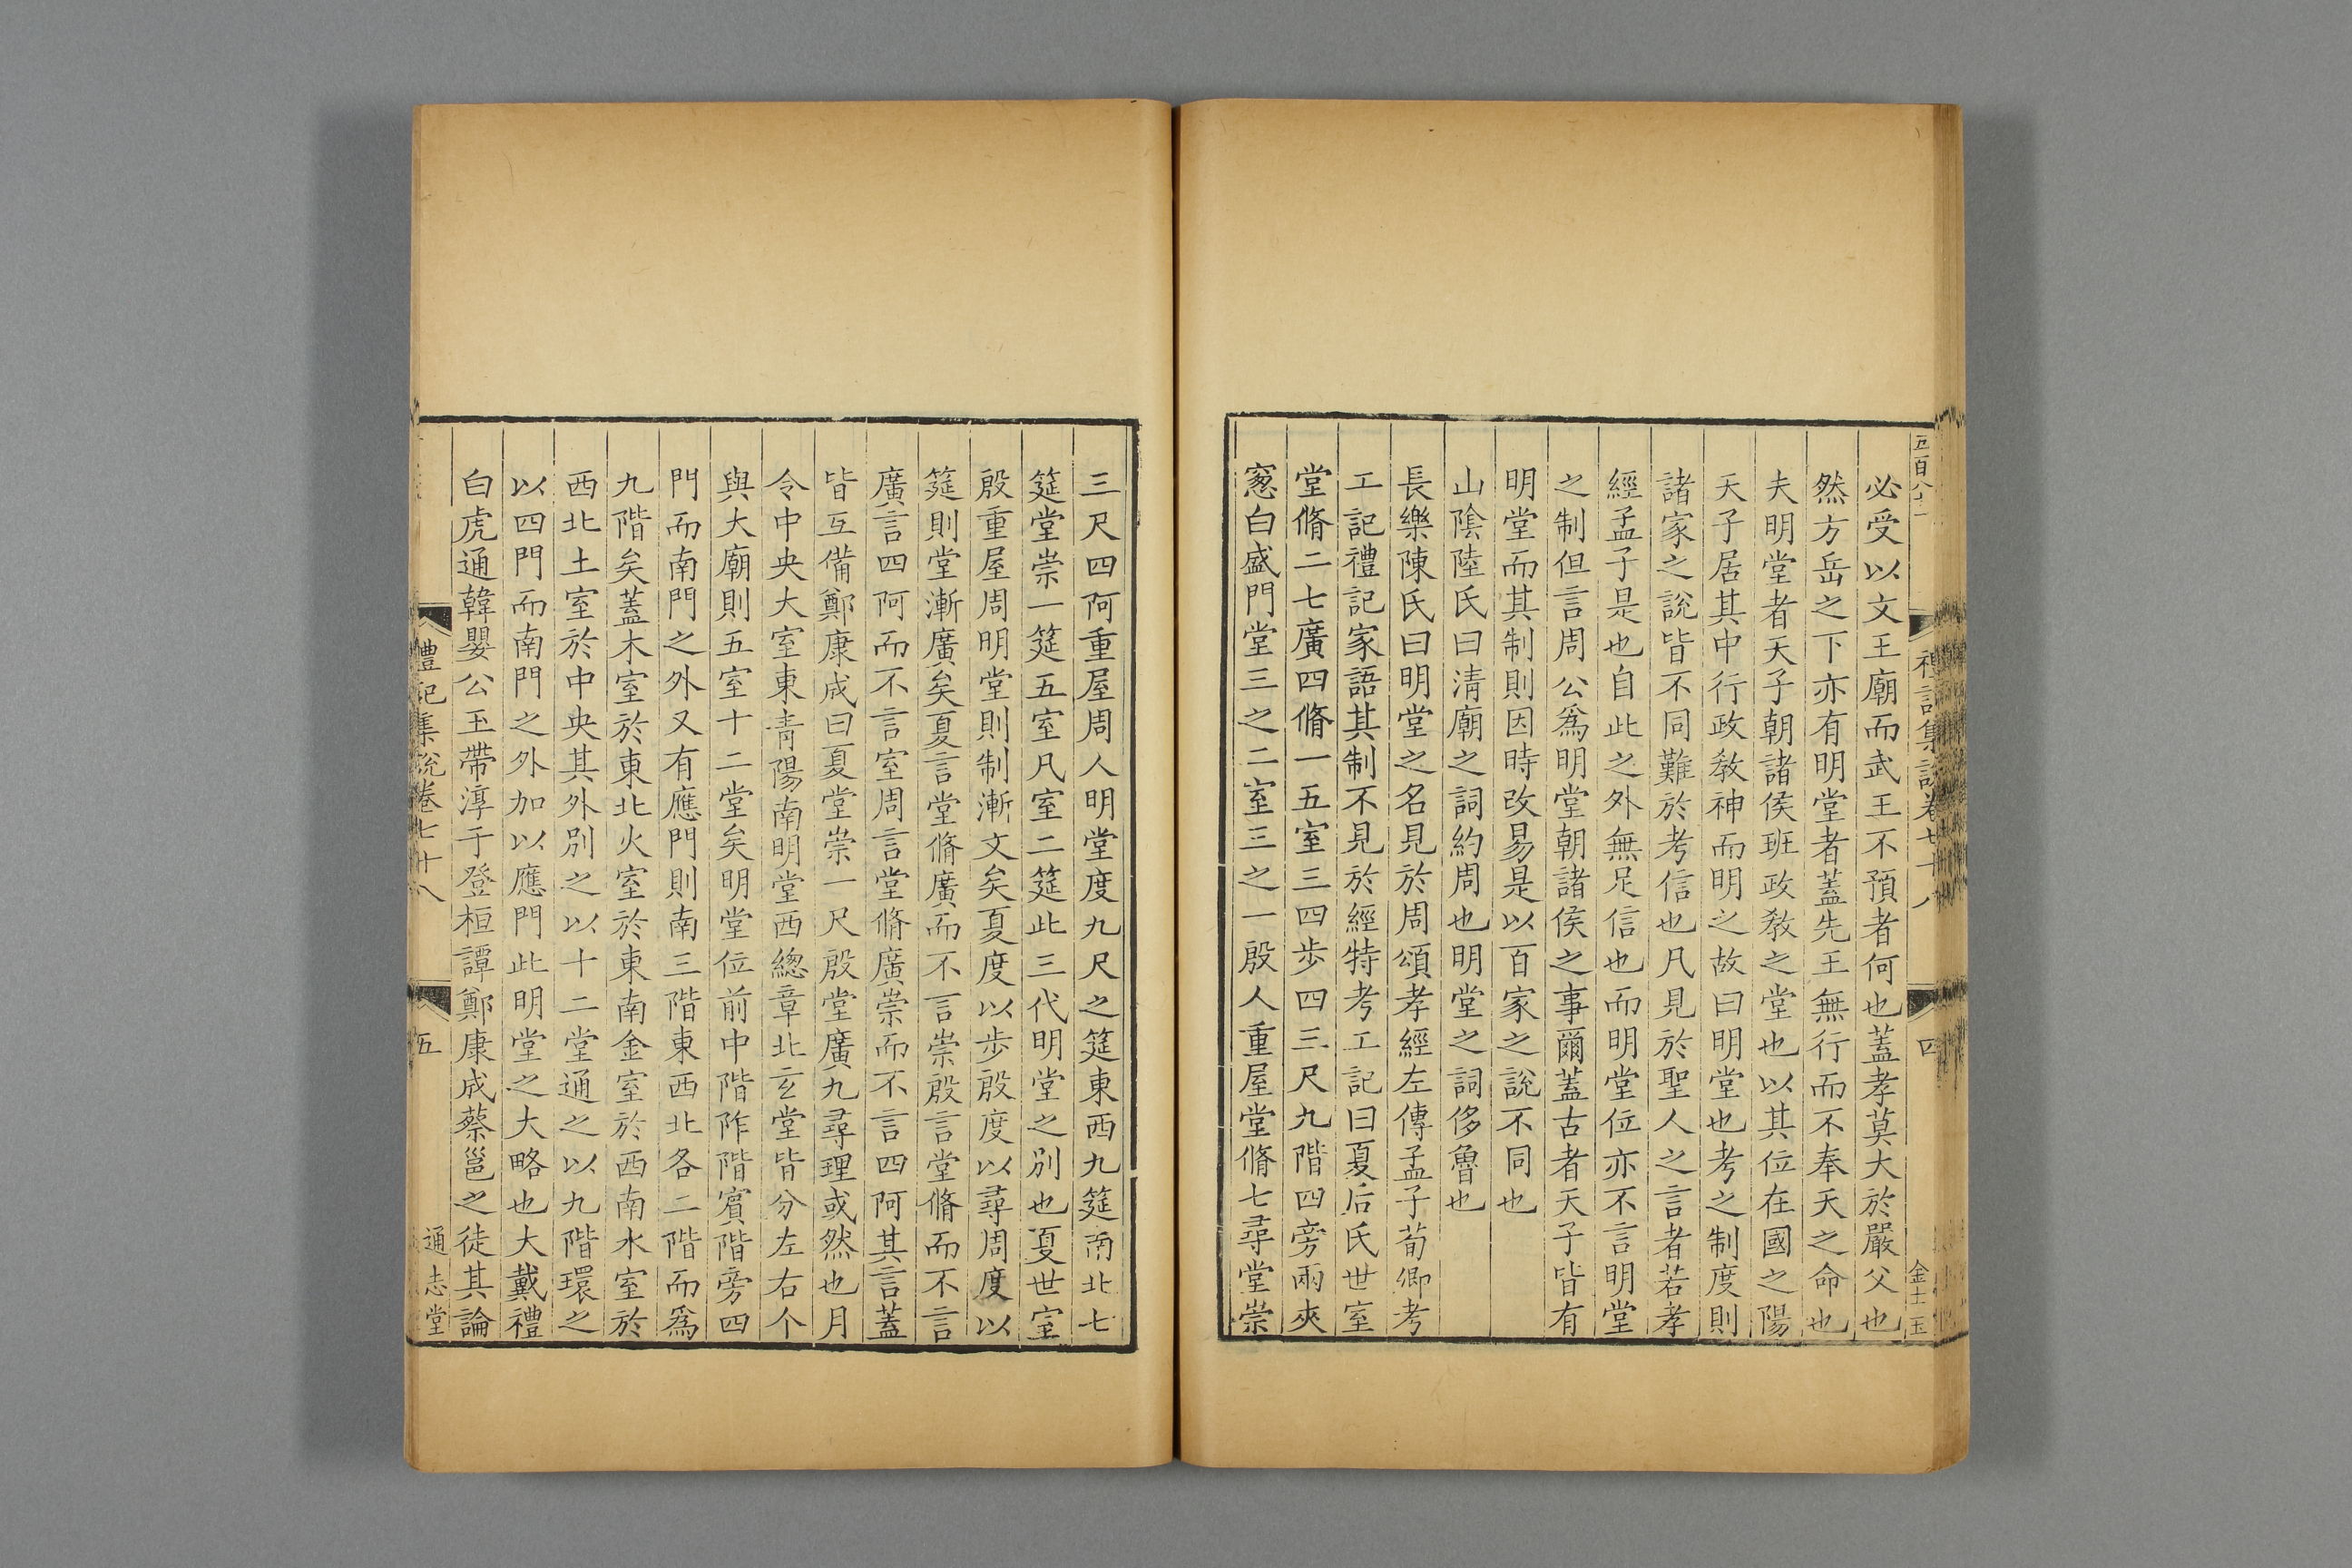 五百八十一
禮記集說卷七十八
四
金士玉
必受以文王廟而武王不預者何也蓋孝莫大於嚴父也
然方岳之下亦有明堂者蓋先王無行而不奉天之命也
夫明堂者天子朝諸侯班政敎之堂也以其位在國之陽
天子居其中行政敎神而明之故曰明堂也考之制度則
諸家之說皆不同難於考信也凡見於聖人之言者若孝
經孟子是也自此之外無足信也而明堂位亦不言明堂
之制但言周公爲明堂朝諸侯之事爾蓋古者天子皆有
明堂而其制則因時改易是以百家之說不同也
山陰陸氏曰清廟之詞約周也明堂之詞侈魯也
長樂陳氏曰明堂之名見於周頌孝經左傳孟子荀卿考
工記禮記家語其制不見於經特考工記曰夏后氏世室
堂脩二七廣四脩一五室三四步四三尺九階四旁兩夾
窻白盛門堂三之二室三之一殷人重屋堂脩七尋堂崇
三尺四阿重屋周人明堂度九尺之筵東西九筵南北七
筵堂崇一筵五室凡室二筵此三代明堂之別也夏世室
殷重屋周明堂則制漸文矣夏度以步殷度以尋周度以
筵則堂漸廣矣夏言堂脩廣而不言崇殷言堂脩而不言
廣言四阿而不言室周言堂脩廣崇而不言四阿其言蓋
皆互備鄭康成曰夏堂崇一尺殷堂廣九尋理或然也月
令中央大室東青陽南明堂西總章北玄堂皆分左右个
與大廟則五室十二堂矣明堂位前中階阼階賓階旁四
門而南門之外又有應門則南三階東西北各二階而爲
九階矣蓋木室於東北火室於東南金室於西南水室於
西北土室於中央其外別之以十二堂通之以九階環之
以四門而南門之外加以應門此明堂之大略也大戴禮
白虎通韓嬰公玉帶淳于登桓譚鄭康成蔡邕之徒其論
禮記集說卷七十八
五
通志堂